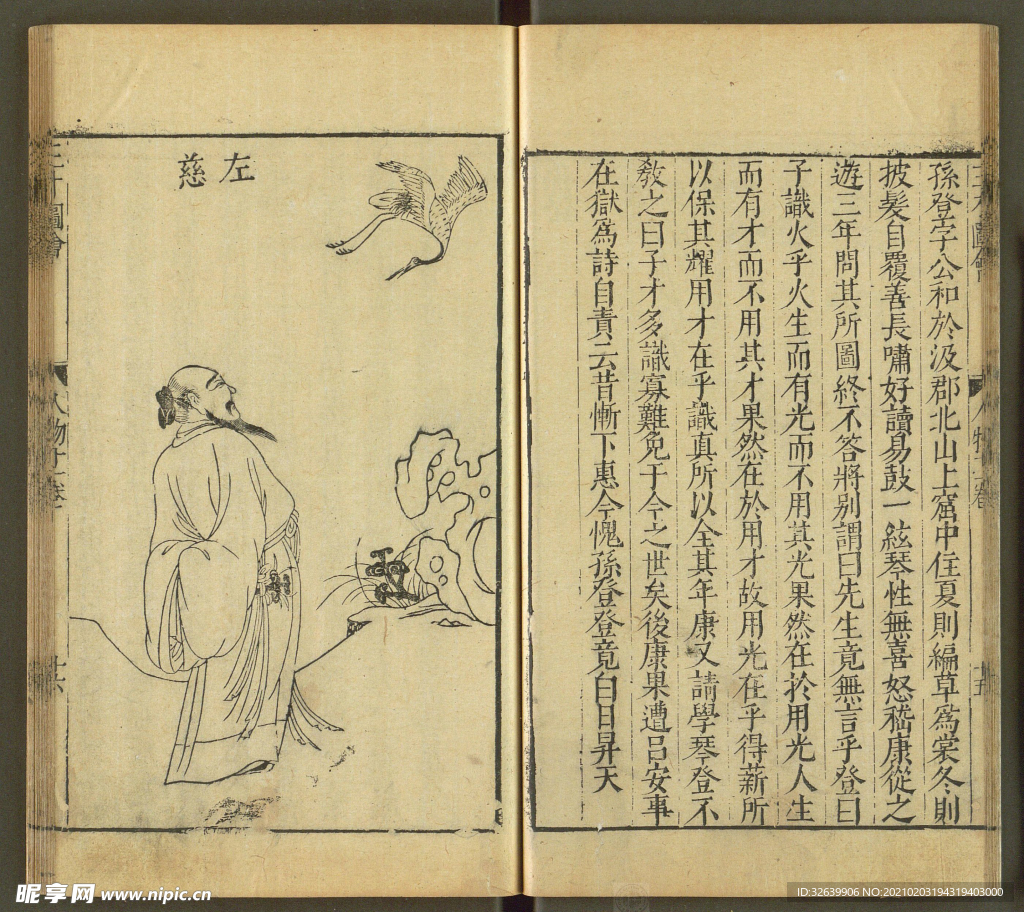 孫登字公和於汲郡北山上窟中住夏則編草爲裳冬則
披髮自覆善長嘯好讀易鼓一絃琴性無喜怒嵇康從之
遊三年問其所圖終不答將别謂曰先生竟無言乎登曰
子識火乎火生而有光而不用其光果然在於用光人生
而有才而不用其才果然在於用才故用光在乎得薪所
以保其耀用才在乎識真所以全其年康又請學琴登不
教之曰子才多識寡難免于今之世矣後康果遭吕安事
在獄爲詩自責云昔慚下惠今愧孫登登竟白日昇天
左慈
三才圖會
人物十一卷
十六
昵享网 www.nipic.cn
ID:32639906 NO:20210203194319403000